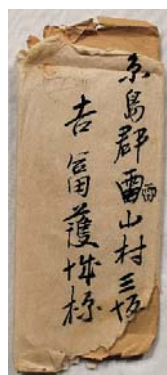 糸島郡雷山村三坂
吉富護城様